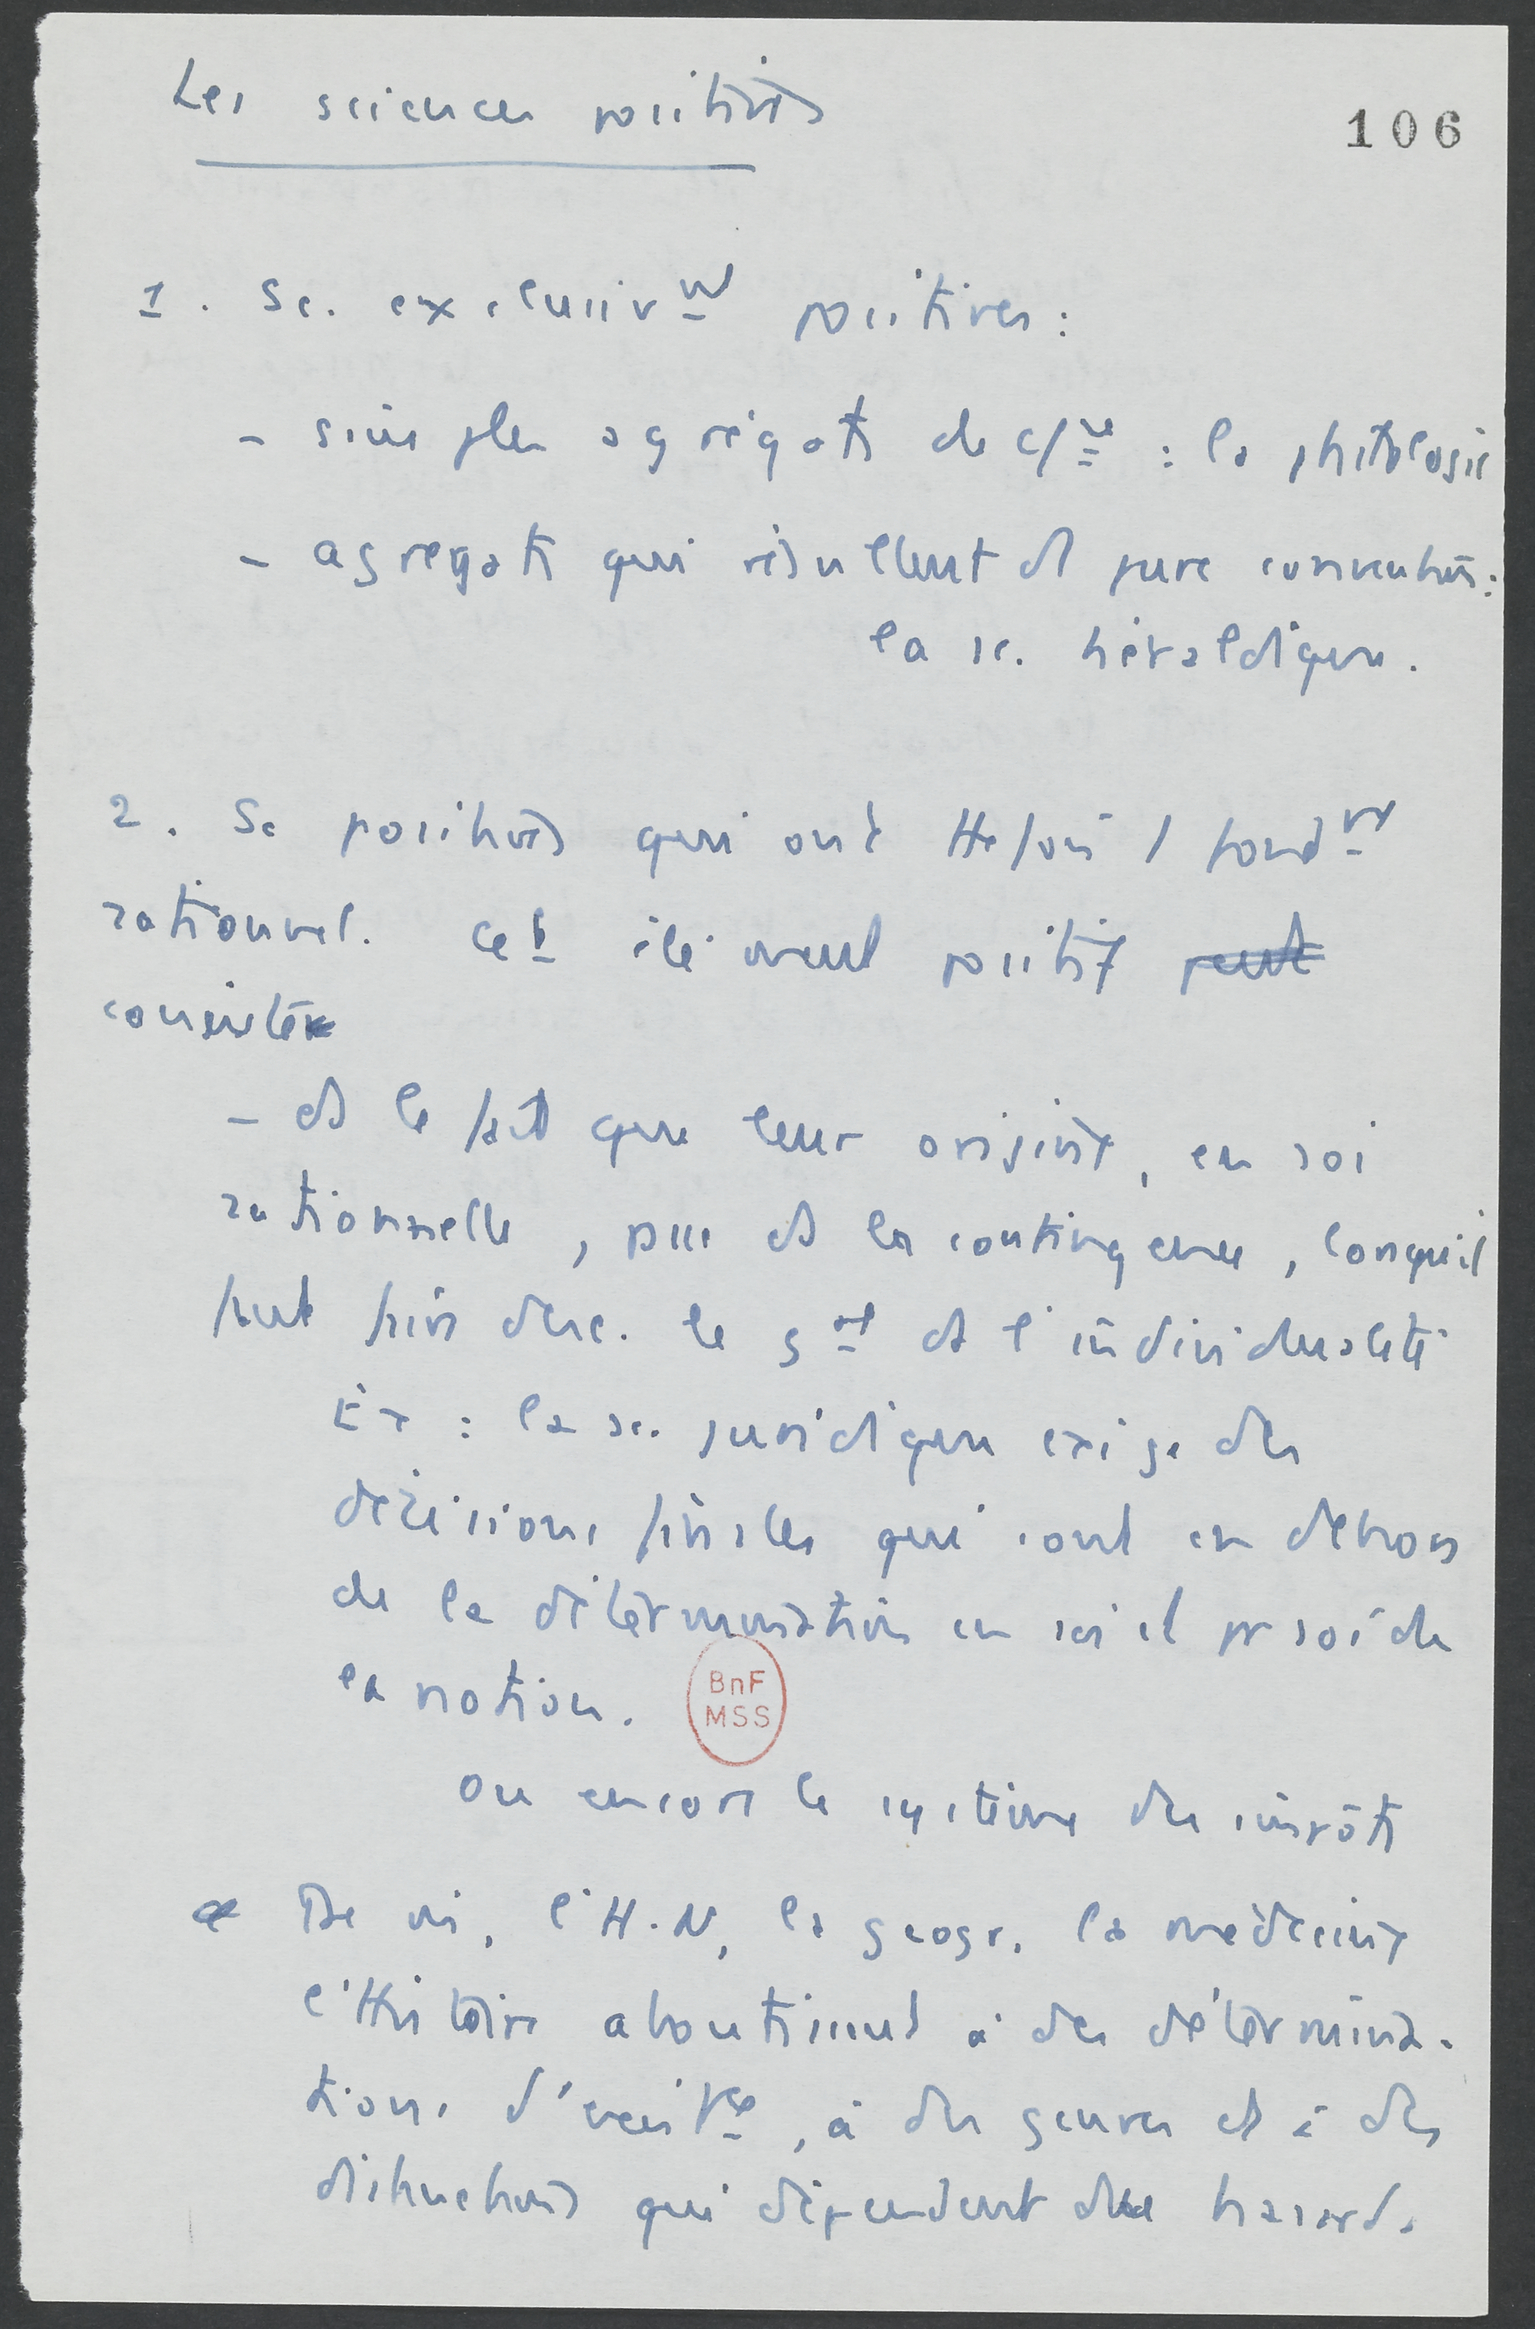 Les sciences positives
106
1. Sc. exclusivmt positives :
- simples agrégats de c/ce : la philologie
- agregats qui résultent de pure convention :
la sc. héraldique.
2. Sc positives qui ont tte fois 1 fondmt
rationnel. Cet élément positif peut
consiste
- ds le fait que leur origine, en soi
rationnelle, passe ds la contingence, lorsqu'il
faut faire desc. le gal ds l'individualité
Ex : la sc. juridique exige des
décisions finales qui sont en dehors
de la détermination en soi et pr soi de
la notion.
BnF
MSS
Ou encore le système des impôts
De m, l'H.N, la geogr. la médecine
l'Histoire aboutissent à des détermina-
tions d'existce, à des genres et à des
distinctions qui dépendent du hasard.